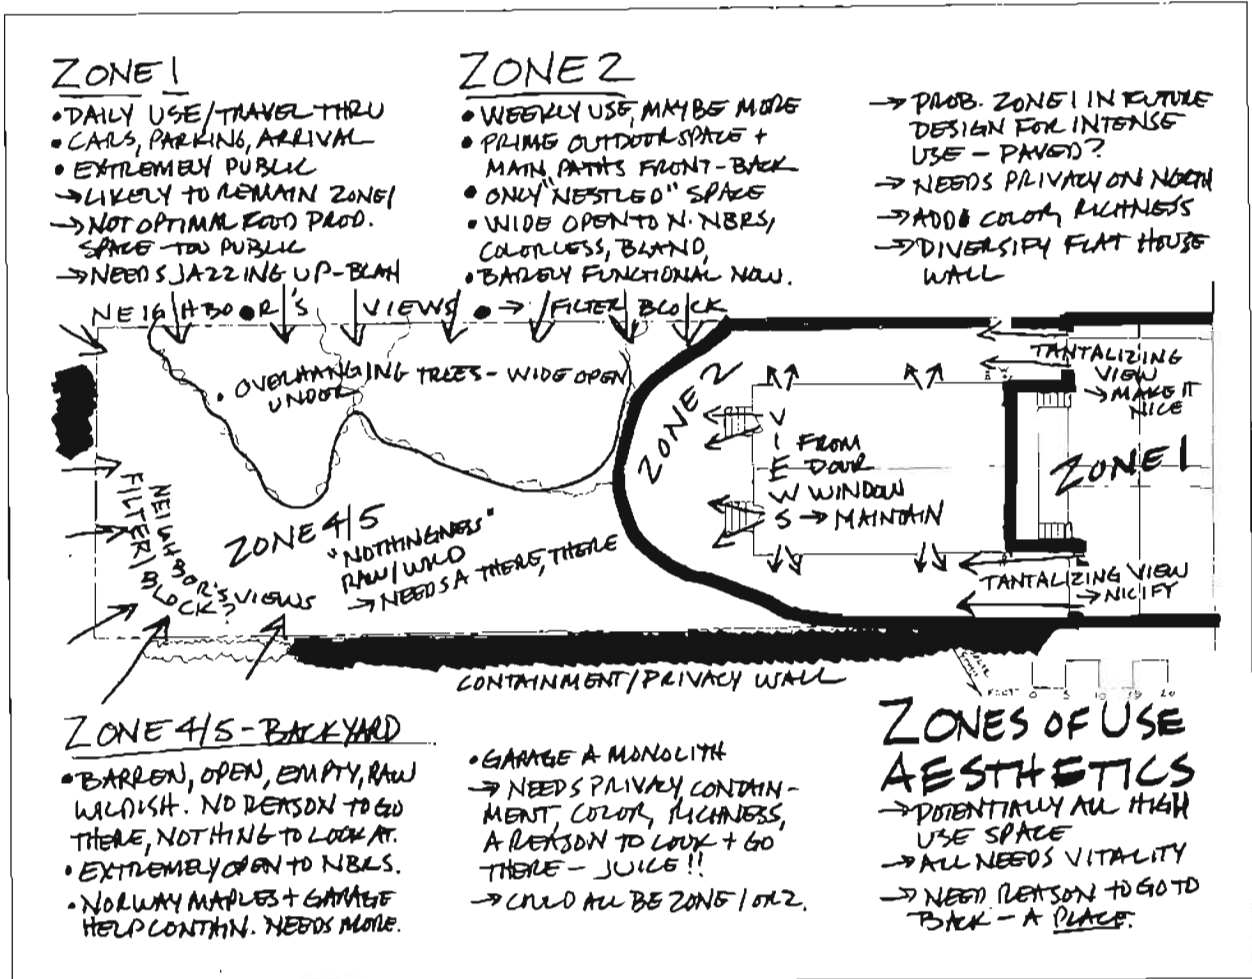 ZONE 1
• DAILY USE/TRAVEL THRU
• CARS, PARKING, ARRIVAL
• EXTREMELY PUBLIC
→ LIKELY TO REMAIN ZONE 1
→ NOT OPTIMAL FOOD PROD.
SPACE - TOO PUBLIC
→ NEEDS JAZZING UP - BLAH
ZONE 2
• WEEKLY USE, MAYBE MORE
• PRIME OUTDOOR SPACE +
MAIN PATHS FRONT-BACK
• ONLY "NESTLED" SPACE
• WIDE OPEN TO N. NBRS,
COLORLESS, BLAND,
• BARELY FUNCTIONAL NOW.
→ PROB. ZONE 1 IN FUTURE
DESIGN FOR INTENSE
USE - PAVED?
→ NEEDS PRIVACY ON NORTH
→ ADD COLOR, RICHNESS
→ DIVERSIFY FLAT HOUSE
WALL
NEIGHBOR'S VIEWS → FILTER BLOCK
• OVERHANGING TREES - WIDE OPEN
UNDER
ZONE 2
VIEWS
FROM
DOUR
WINDOW
→ MAINTAIN
TANTALIZING
VIEW
→ MAKE IT
NICE
ZONE 1
TANTALIZING VIEW
→ NICIFY
NEIGHBOR'S VIEWS
FILTER/BLOCK?
ZONE 4/5
"NOTHINGNESS"
RAW/WILD
→ NEEDS A THERE, THERE
CONTAINMENT/PRIVACY WALL
FEET 0 5 10 15 20
ZONE 4/5 - BACKYARD
• BARREN, OPEN, EMPTY, RAW
WILDISH. NO REASON TO GO
THERE, NOTHING TO LOOK AT.
• EXTREMELY OPEN TO NBRS.
• NORWAY MAPLES + GARAGE
HELP CONTAIN. NEEDS MORE.
• GARAGE A MONOLITH
→ NEEDS PRIVACY CONTAIN-
MENT, COLOR, RICHNESS,
A REASON TO LOOK + GO
THERE - JUICE!!
→ COULD ALL BE ZONE 1 OR 2.
ZONES OF USE
AESTHETICS
→ POTENTIALLY ALL HIGH
USE SPACE
→ ALL NEEDS VITALITY
→ NEED REASON TO GO TO
BACK - A PLACE.